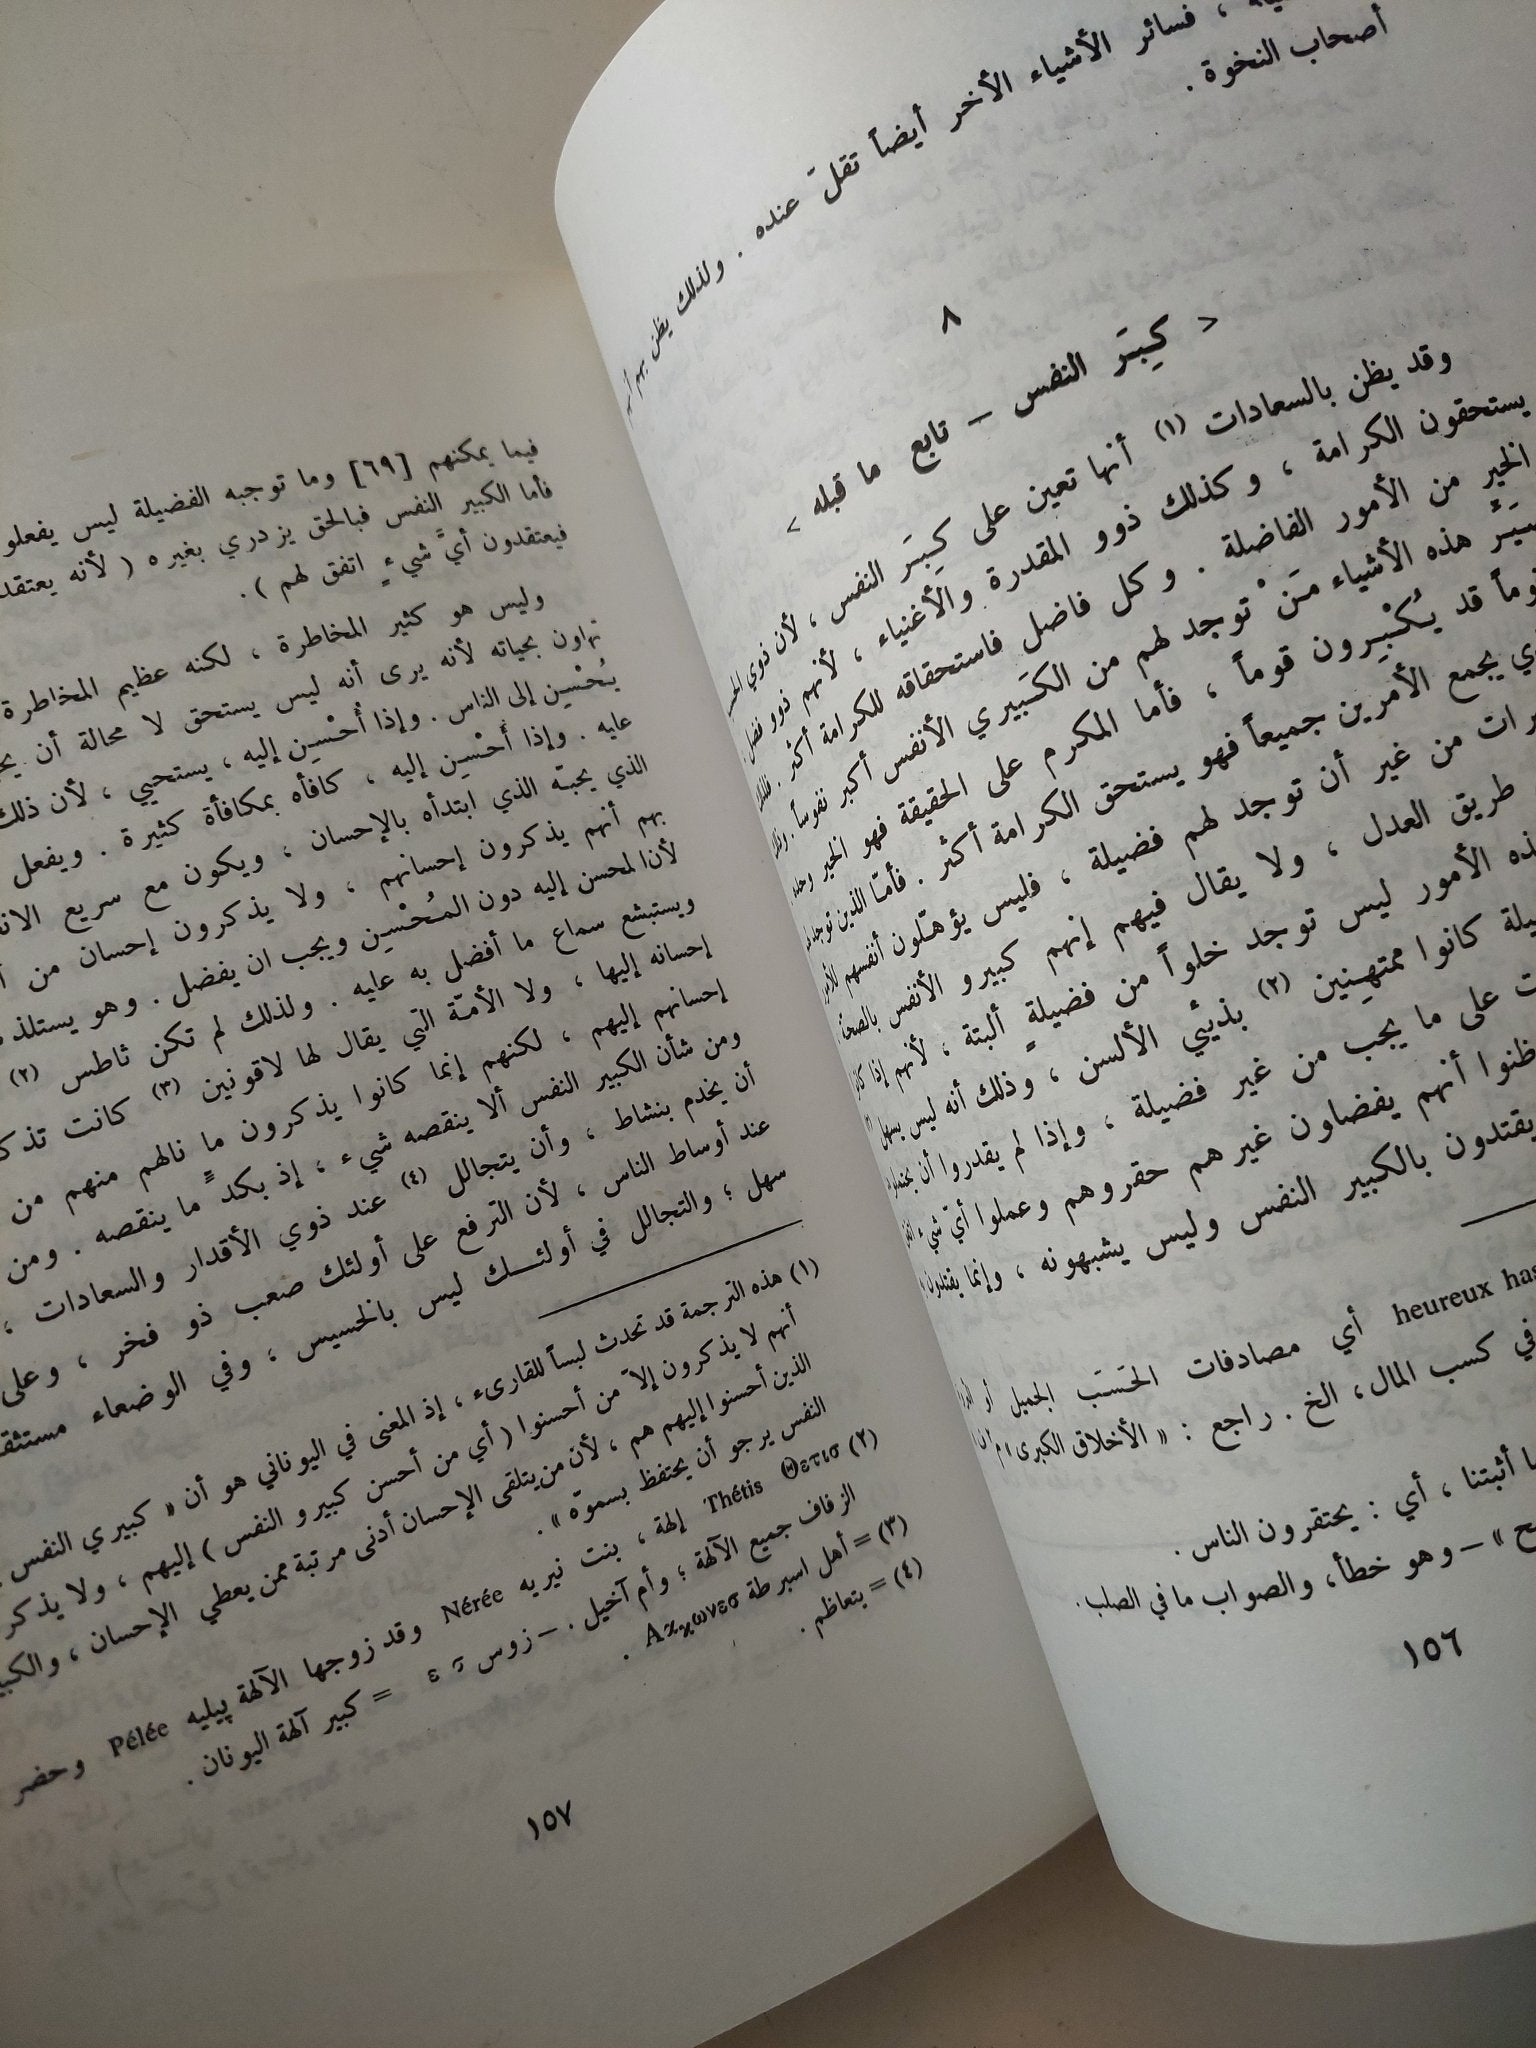 فسائر الأشياء الأخر أيضاً تقلّ عنده . ولذلك يظن بهم
أصحاب النخوة .
٨
< كِبَر النفس – تابع ما قبله >
وقد يظن بالسعادات (١) أنها تعين على كِبَر النفس ، لأن ذوي
يستحقون الكرامة ، وكذلك ذوو المقدرة والأغنياء ، لأنهم ذوو فضل
الخير من الأمور الفاضلة . وكل فاضل فاستحقاقه للكرامة أكثر .
هذه الأشياء مَنْ توجد لهم من الكَبيري الأنفس أكبر نفوساً .
قد يُكْبِرون قوماً ، فأما المكرم على الحقيقة فهو الخير وحده
يجمع الأمرين جميعاً فهو يستحق الكرامة أكثر . فأمّا الذين توجد
من غير أن توجد لهم فضيلة ، فليس يؤهّلون أنفسهم
طريق العدل ، ولا يقال فيهم إنهم كبيرو الأنفس
الأمور ليس توجد خلواً من فضيلةٍ ألبتة ، لأنهم إذا
كانوا ممتهِنين (٢) بذيئي الألسن ، وذلك أنه ليس يسهل
على ما يجب من غير فضيلة ، وإذا لم يقدروا أن
ظنوا أنهم يفضاون غيرهم حقروهم وعملوا أيّ شيء
يقتدون بالكبير النفس وليس يشبهونه ، وإنما يقتدون
heureux أي مصادفات الحَسَب الجميل أو
في كسب المال ، الخ . راجع : « الأخلاق الكبرى »
أثبتنا ، أي : يحتقرون الناس .
» – وهو خطأ ، والصواب ما في الصلب .
١٥٦
فيما يمكنهم [٦٩] وما توجبه الفضيلة ليس
فأما الكبير النفس فبالحق يزدري بغيره ( لأنه
فيعتقدون أيَّ شيءٍ اتفق لهم ) .
وليس هو كثير المخاطرة ، لكنه عظيم المخاطرة
تهاون بحياته لأنه يرى أنه ليس يستحق لا محالة أن
يُحْسِن إلى الناس . وإذا أُحْسِن إليه ، يستحيي ، لأن ذلك
عليه . وإذا أُحْسِن إليه ، كافأه بمكافأة كثيرة . ويفعل
الذي يحبّه الذي ابتدأه بالإحسان ، ويكون مع سريع
بهم أنهم يذكرون إحسانهم ، ولا يذكرون إحسان من
لأن المحسن إليه دون المُحْسِن ويجب ان يفضل . وهو يستلذ
ويستبشع سماع ما أفضل به عليه . ولذلك لم تكن ثاطس (٢)
إحسانه إليها ، ولا الأمّة التي يقال لها لاقونين (٣) كانت
إحسانهم إليهم ، لكنهم إنما كانوا يذكرون ما نالهم منهم من
ومن شأن الكبير النفس ألا ينقصه شيء ، إذ بكدٍّ ما ينقصه . ومن
أن يخدم بنشاط ، وأن يتجالل (٤) عند ذوي الأقدار والسعادات ،
عند أوساط الناس ، لأن الترفع على أولئك صعب ذو فخر ، وعلى
سهل ؛ والتجالل في أولئـــك ليس بالخسيس ، وفي الوضعاء
(١) هذه الترجمة قد تحدث لبساً للقارىء ، إذ المعنى في اليوناني هو أن « كبيري النفس
أنهم لا يذكرون إلاّ من أحسنوا ( أي من أحسن كبيرو النفس ) إليهم ، ولا
الذين أحسنوا إليهم هم ، لأن من يتلقى الإحسان أدنى مرتبة ممن يعطي الإحسان ،
النفس يرجو أن يحتفظ بسموّه » .
(٢) Θετισ Thétis إلهة ، بنت نيريه Nérée وقد زوجها الآلهة پيليه Pélée وحضر
الزفاف جميع الآلهة ؛ وأم آخيل . – زوس = كبير آلهة اليونان .
(٣) = أهل اسبرطة .
(٤) = يتعاظم .
١٥٧